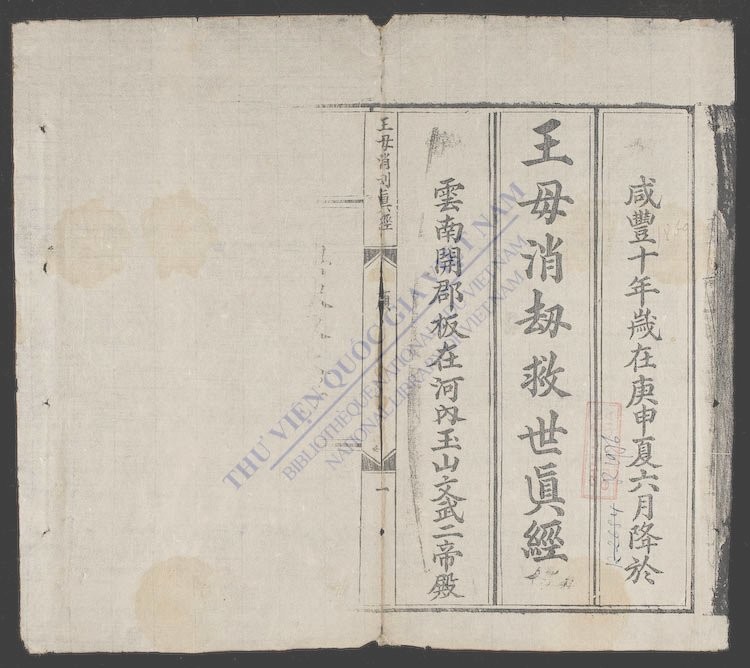 咸豐十年歲在庚申夏六月降於
王毋消刼救世眞經
雲南開郡板在河內玉山文武二帝殿
王毋消刦眞經
一
THƯ VIỆN QUỐC GIA VIỆT NAM
BIBLIOTHÈQUE NATIONALE DU VIETNAM
NATIONAL LIBRARY OF VIETNAM